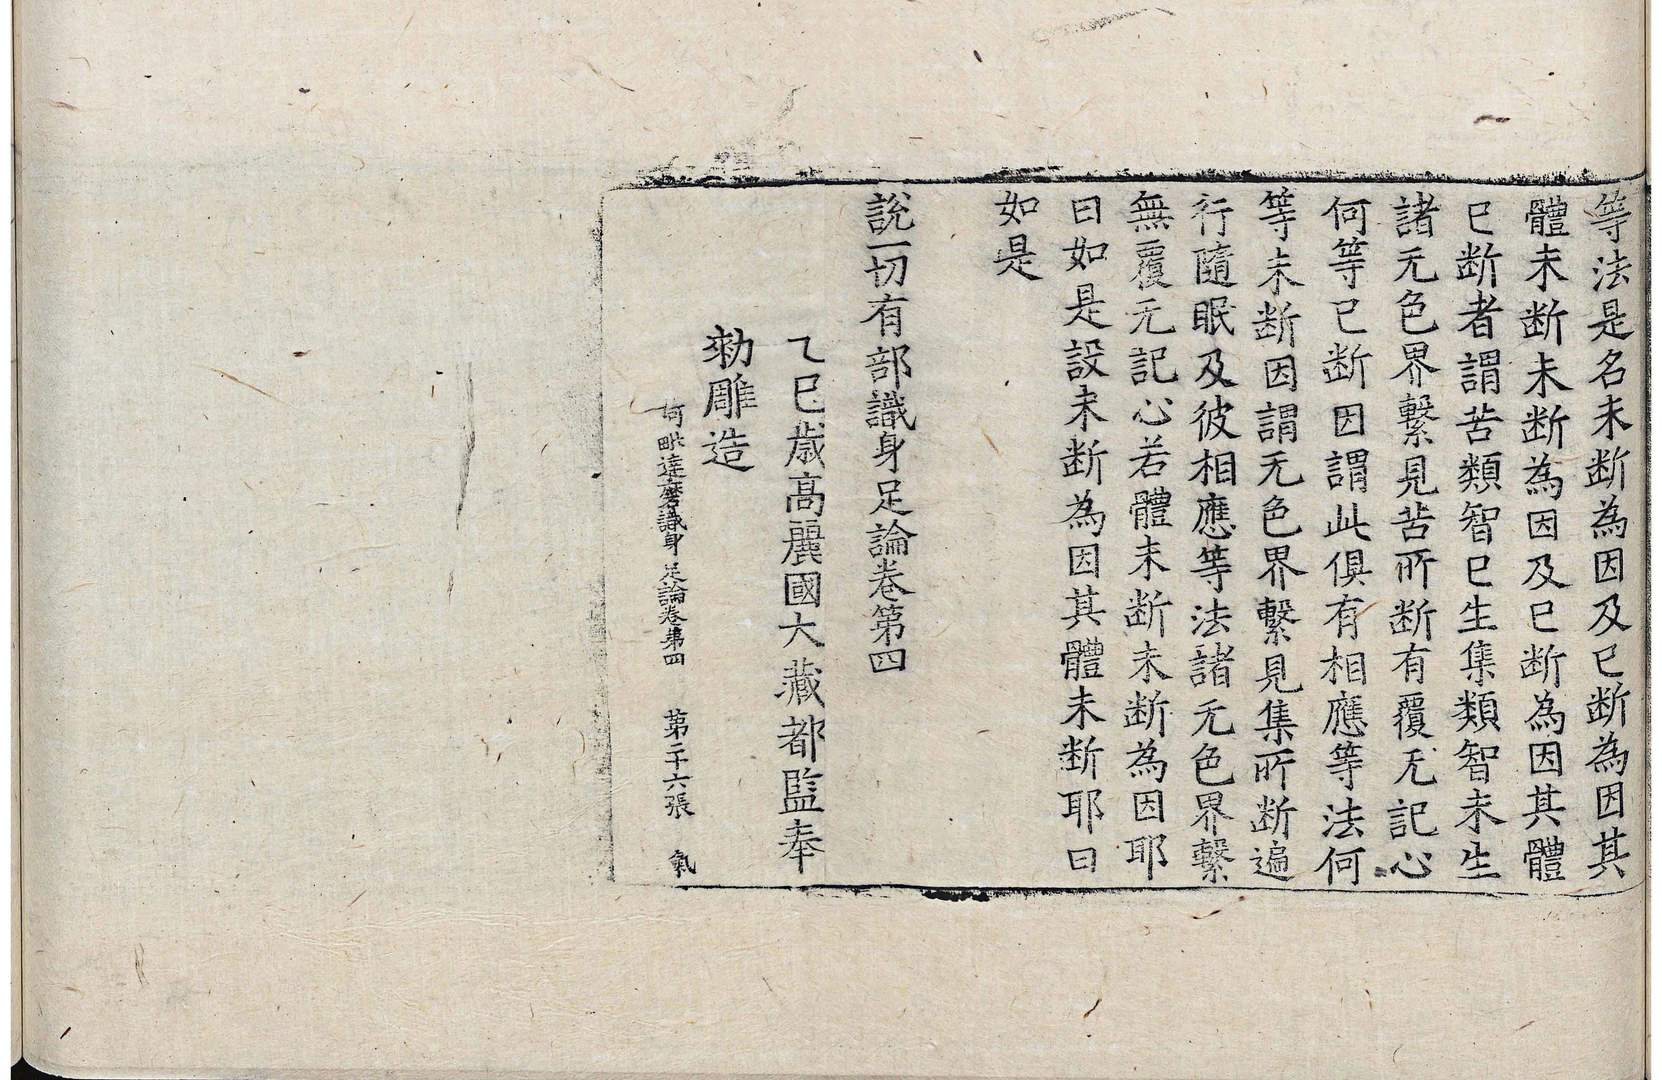 等法是名未断為因及已断為因其
體未断未断為因及已断為因其體
已断者謂苦類智已生集類智未生
諸无色界繫見苦所断有覆无記心
何等已断因謂此俱有相應等法何
等未断因謂无色界繫見集所断遍
行隨眠及彼相應等法諸无色界繫
無覆无記心若體未断未断為因耶
曰如是設未断為因其體未断耶曰
如是
說一切有部識身足論卷第四
乙巳歳高麗國大藏都監奉
勑雕造
阿毗達磨識身足論卷第四 第二十六張 氣